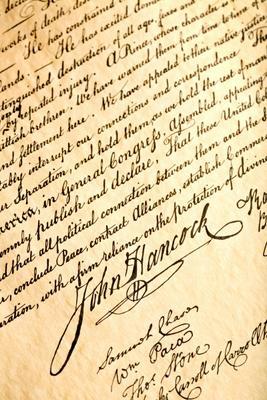 works of death, deso
He has constrained
He has excited dome
undistinguished destruction of all ages, sexes an
by repeated injury. A Prince, whose character is
British brethren. We have warned them from time to time of
and settlement here. We have appealed to their native
ably interrupt our connections and correspondence.
our Separation, and hold them, as we hold the rest of man
America, in General Congress, Assembled, appealing
solemnly publish and declare, That these United Col
and that all political connection between them and the S
conclude Peace, contract Alliances, establish Comm
aration, with a firm reliance on the protection of divin
John Hancock
Samuel Chase
Wm Paca
Thos Stone
Carroll of Carrollt